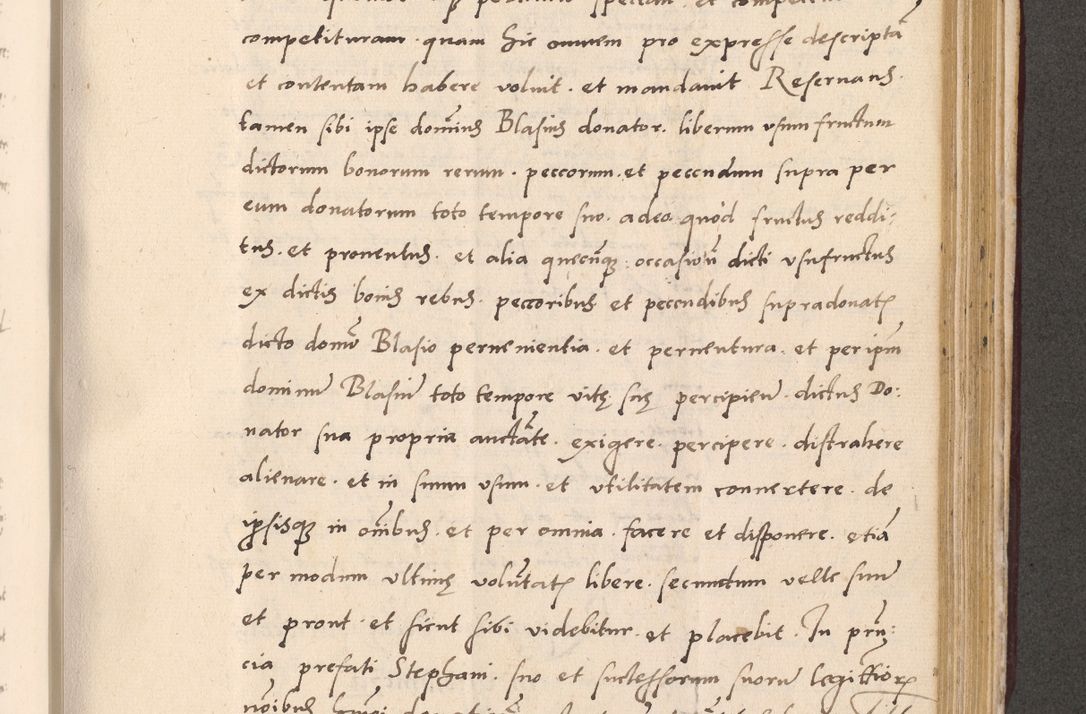 competituram · quam hic omnem pro expresse descriptā
et contentam habere voluit · et mandavit Reservans ·
tamen sibi ipse domīus Blasius donator · liberum usum fructum
dictorum bonorum rerum · peccorum · et peccudum supra per
eum donatorum toto tempore suo · adeo quòd fructus reddi-
tus · et proventus · et alia quecūq; occasioīi dicti usufructus
ex dictis bonis rebus · peccoribus et peccudibus supradonatꝭ
dicto domīo Blasio pervenientia · et perventura · et per ip̄m
dominū Blasiū toto tempore vitę suę percipienꝰ · dictus Do:
nator sua propria auctāte · exigere · percipere · distrahere
alienare · et in suum usum · et utilitatem convertere · de
ip̄sisq; in oībus · et per omnia · facere et disponere · etiā
per modum ultimę volūtatꝭ libere · secundum velle suū
et prout · et sicut sibi videbitur · et placebit · In prn̄:
cia prefati Stephani · suo et successorum suorū legittīorꝝ